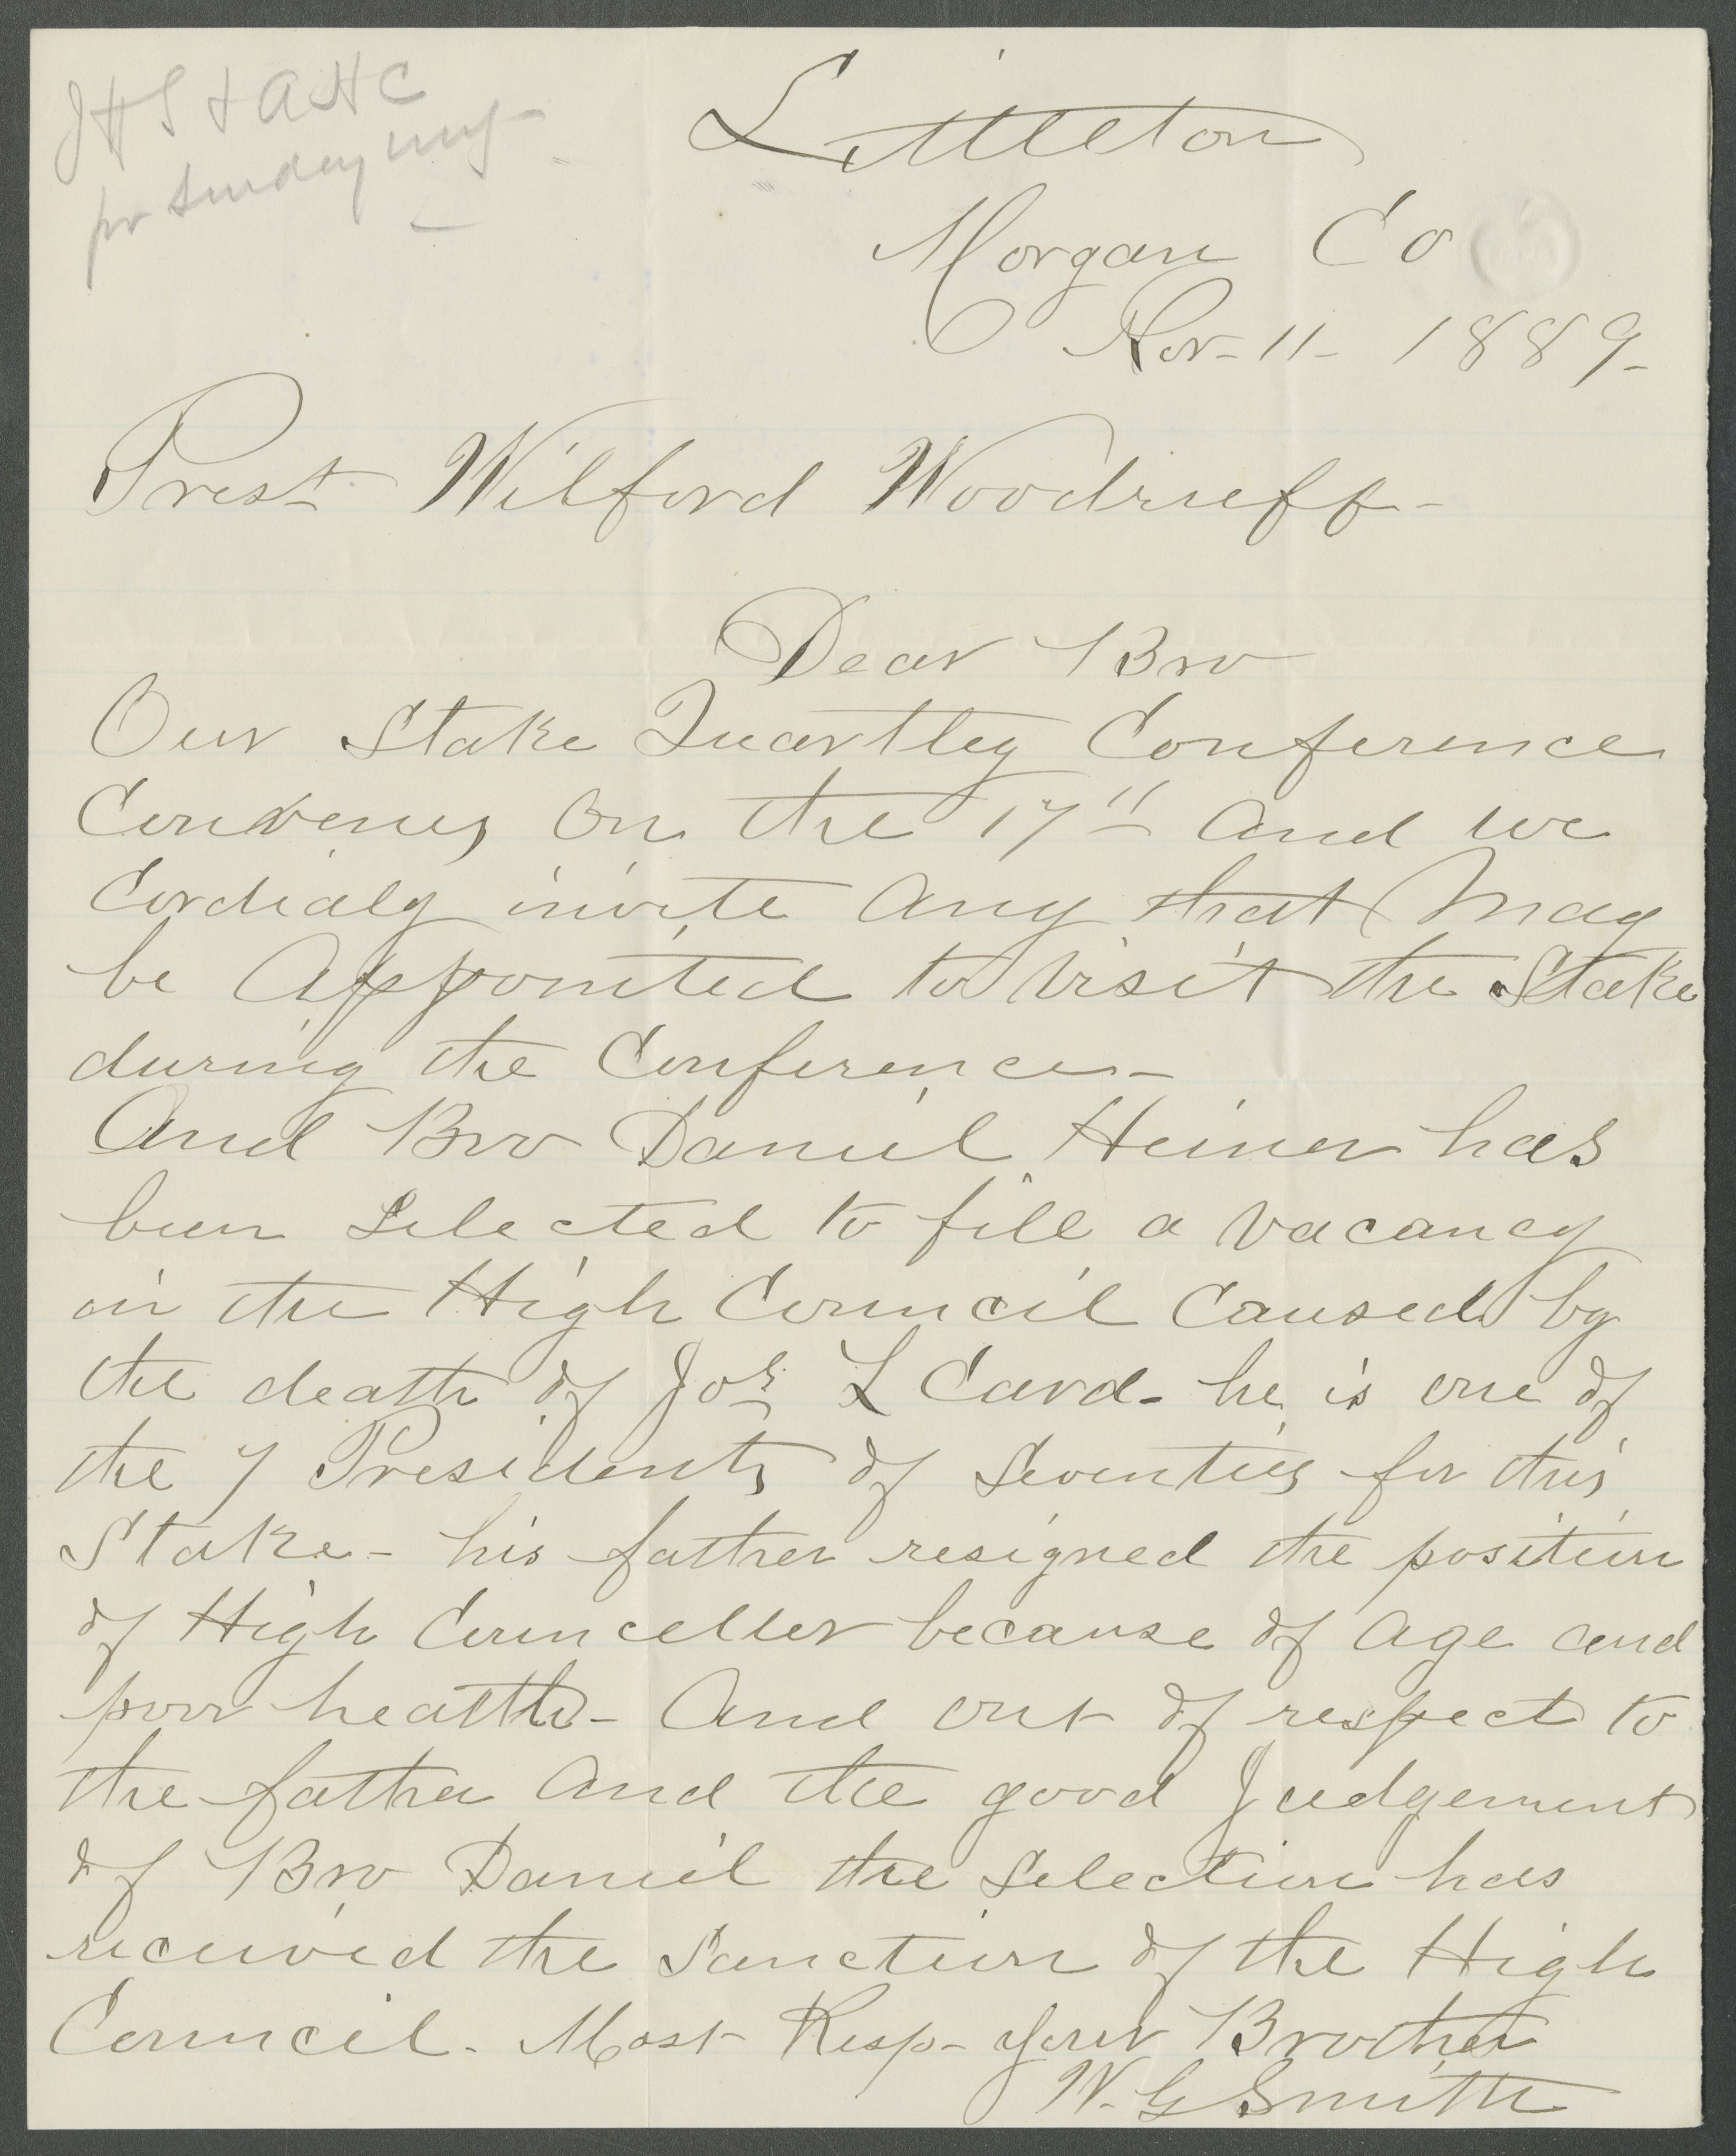 JHS & AHC
for Sunday mng
Littleton
Morgan Co
Nov - 11 - 1889 -
Prest Wilford Woodruff -
Dear Bro
Our Stake Quartley Conference
Convenes On the 17" and we
Cordialy invite any that May
be Appointed to Visit the Stake
during the Conference -
And Bro Daniel Heiner has
been Selected to fill a vacancy
in the High Council Caused by
the death of Jos L Card - he is one of
the 7 Presidents of Seventies for this
Stake - his father resigned the position
of High Counceller because of age and
poor health - And out of respect to
the father And the good Judgement
of Bro Daniel the Selection has
received the Sanction of the High
Council. Most Resp - your Brother
W. G Smith